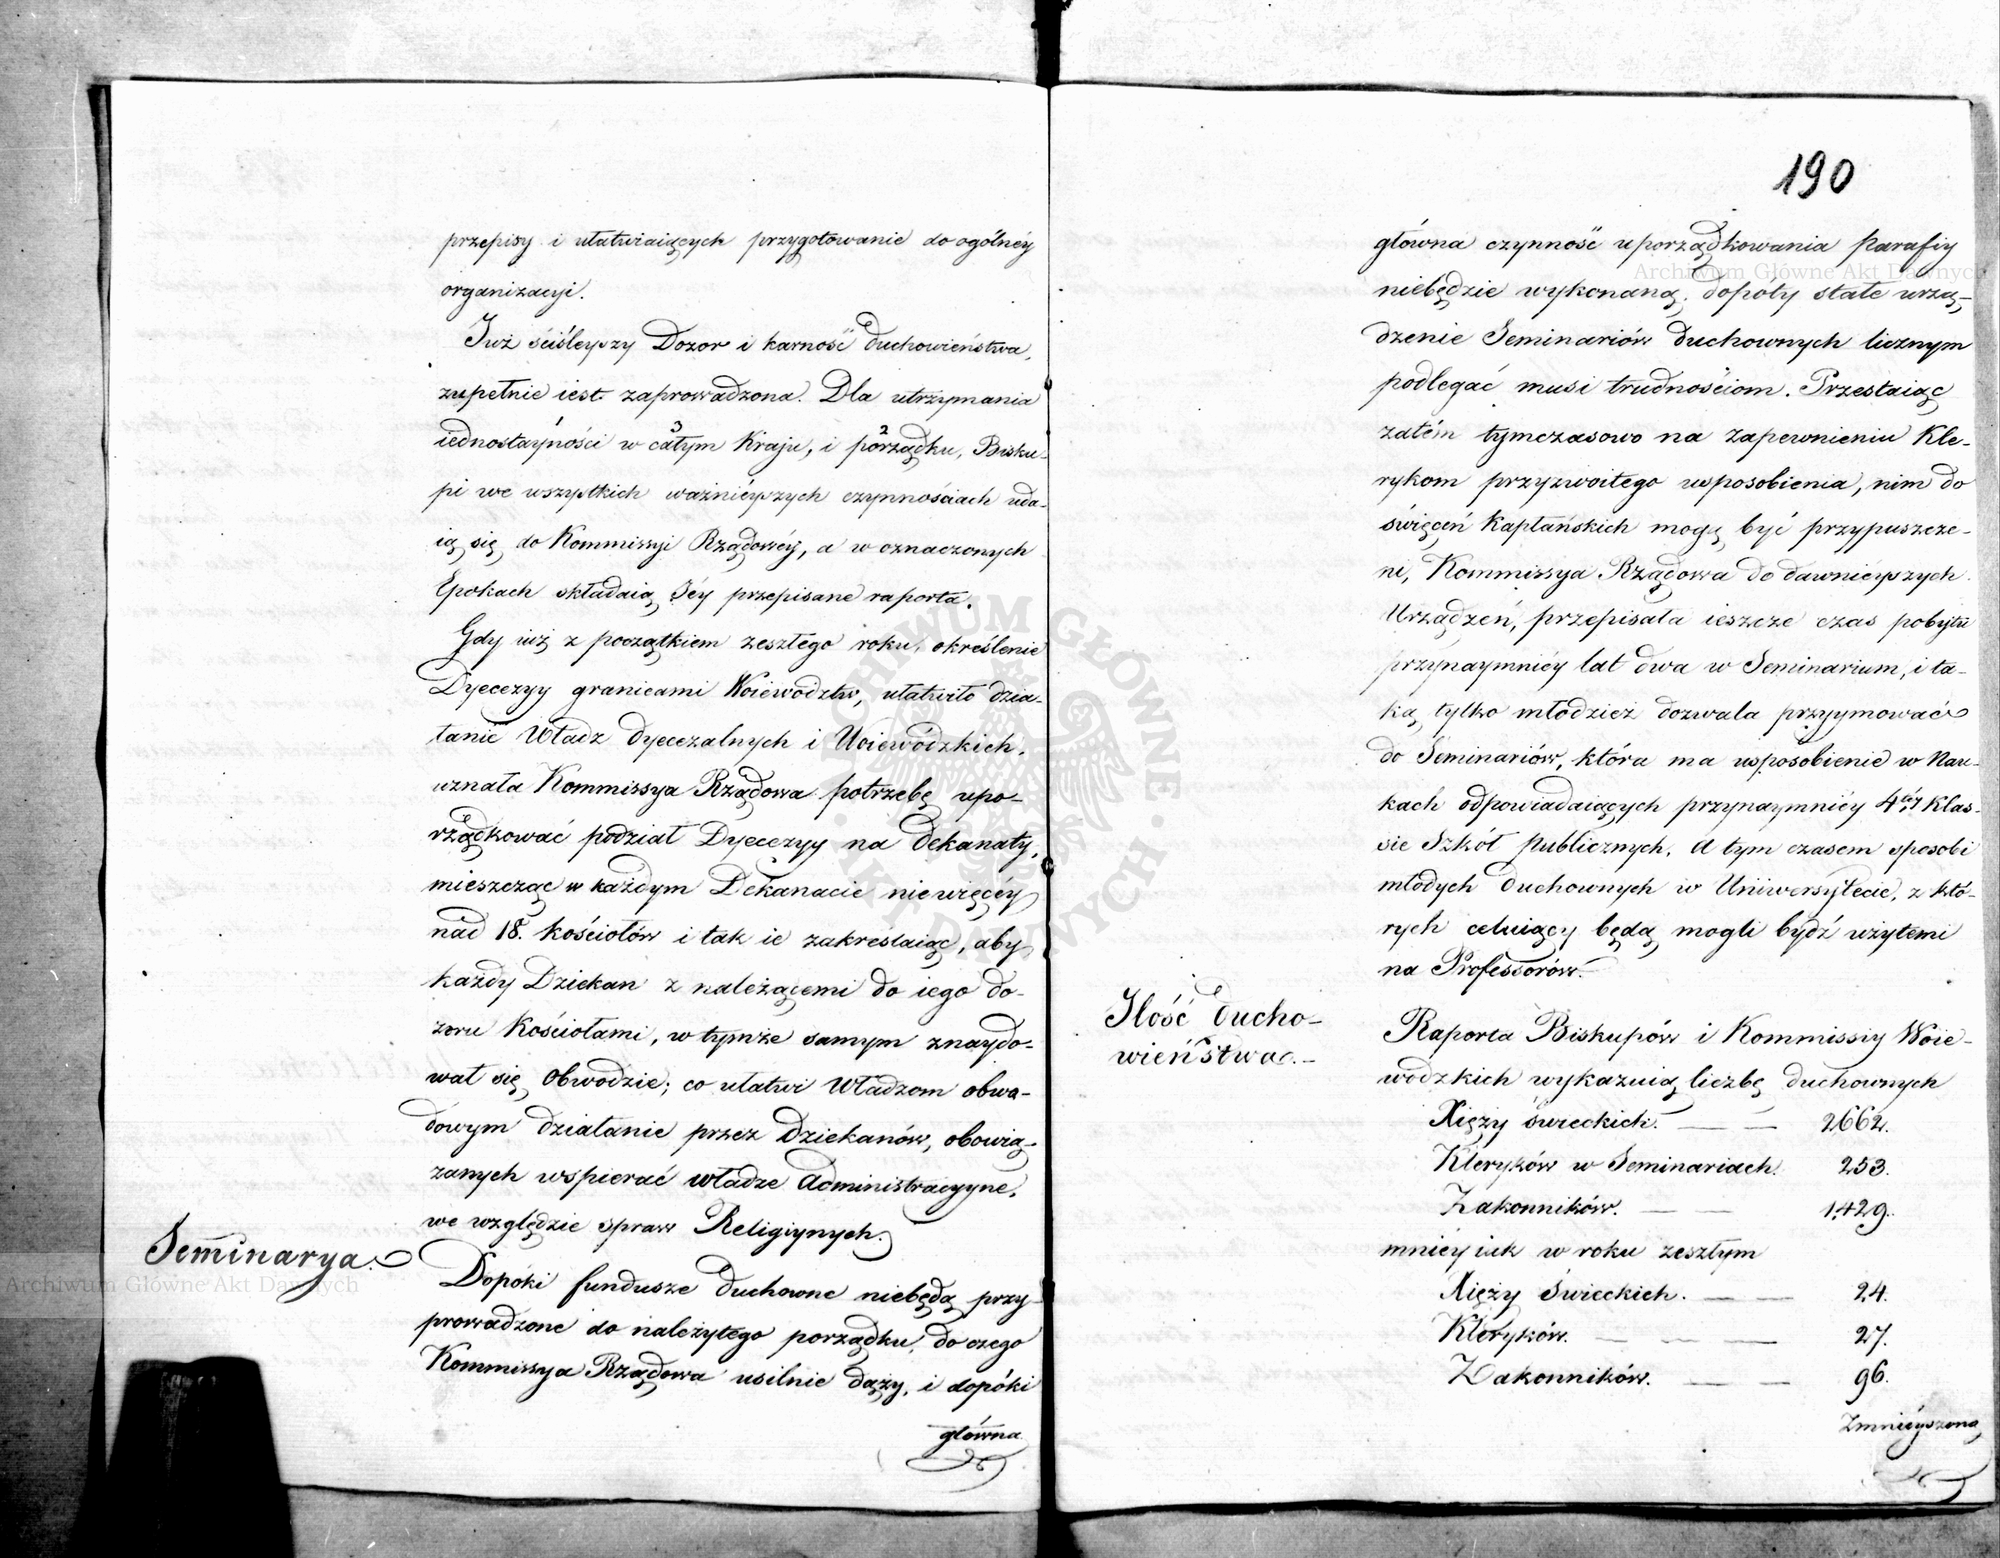 przepisy i ułatwiaiących przygotowanie do ogólnéy
organizacyi.
Już ściśleyszy Dozor i karność Duchowieństwa,
zupełnie iest zaprowadzona. Dla utrzymania
iednostayności w całym Kraju, i porządku, Bisku-
pi we wszystkich ważnieyszych czynnościach uda-
ią się do Kommissyi Rządowéy, a w oznaczonych
Epokach składaią Jéy przepisane raporta.
Gdy iuż z początkiem zeszłego roku, określenie
Dyecezyy granicami Woiewództw, ułatwiło dzia-
łanie Władz Dyecezalnych i Woiewódzkich,
uznała Kommissya Rządowa potrzebę upo-
rządkować podział Dyecezyy na Dekanaty,
mieszcząc w każdym Dekanacie niewięcéy
nad 18. Kościołów i tak ie zakreślaiąc, aby
każdy Dziekan z należącemi do iego do-
zoru Kościołami, w tymże samym znaydo-
wał się Obwodzie; co ułatwi Władzom obwo-
dowym działanie przez Dziekanów, obowią-
zanych wspierać władze Administracyyne,
we względzie spraw Religiynych.
Seminarya.
Dopóki fundusze duchowne niebędą przy-
prowadzone do należytego porządku, do czego
Kommissya Rządowa usilnie dąży, i dopóki
główna
190
główna czynność uporządkowania Parafiy
niebędzie wykonaną, dopóty stałe urzą-
dzenie Seminariów Duchownych licznym
podlegać musi trudnościom. Przestaiąc
zatém tymczasowo na zapewnieniu Kle-
rykom przyzwoitego usposobienia, nim do
święceń Kapłańskich mogą być przypuszcze-
ni, Kommissya Rządowa do dawnieyszych
Urządzeń, przepisała ieszcze czas pobytu
przynaymniéy lat dwa w Seminarium, i ta-
ką tylko młodzież dozwala przyymować
do Seminariów, która ma usposobienie w Nau-
kach odpowiadaiących przynaymniéy 4téy Klas-
sie Szkół Publicznych. A tym czasem sposobi
młodych Duchownych w Uniwersytecie, z któ-
rych celuiący będą mogli bydź użytemi
na Professorów.
Ilość ducho-
wieństwa.
Raporta Biskupów i Kommissiy Woie-
wódzkich wykazuią liczbę Duchownych
Xięży świeckich. — — 2662.
Kleryków w Seminariach. 253.
Zakonników. — — 1429.
mniey iak w roku zeszłym
Xięży Świeckich. — — 24.
Kleryków. — — — 27.
Zakonników. — — 96.
Zmnieyszona
Archiwum Główne Akt Dawnych
Archiwum Główne Akt Dawnych
ARCHIWUM GŁÓWNE · AKT DAWNYCH ·